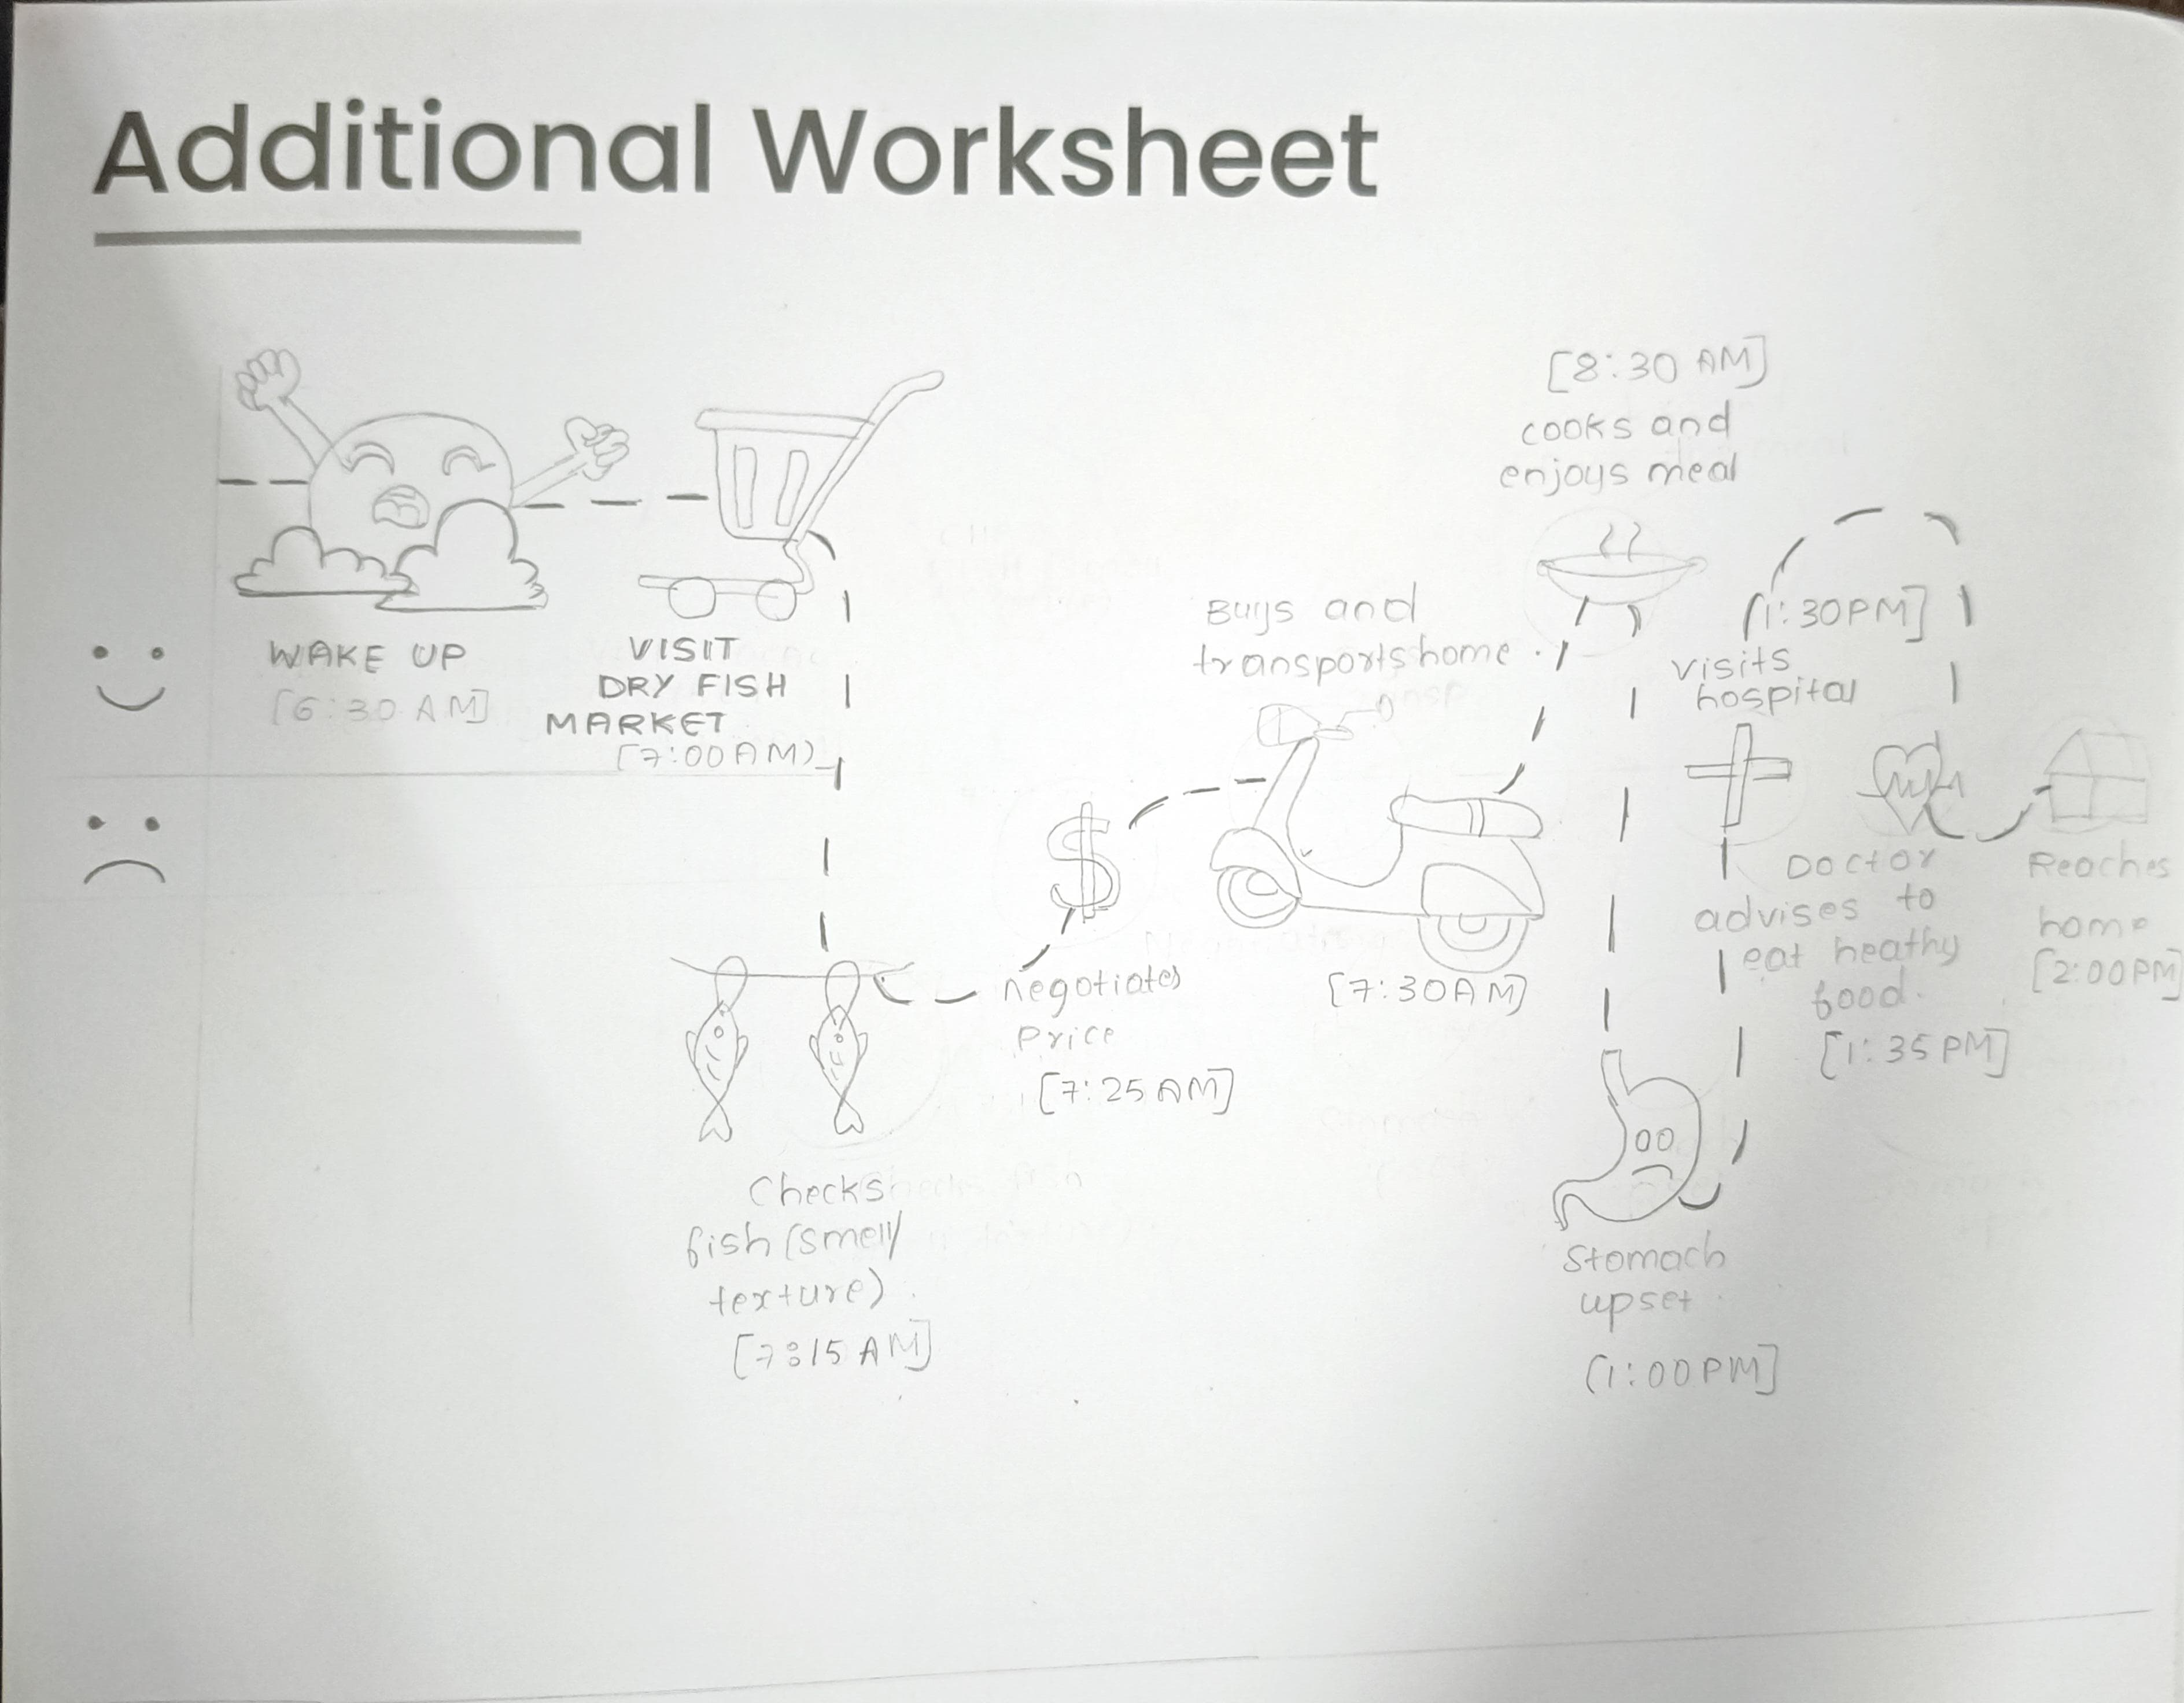 Additional Worksheet
WAKE UP
[6:30 AM]
VISIT
DRY FISH
MARKET
[7:00AM)
Checks
fish (smell/
texture).
[7:15 AM]
negotiates
price
[7:25 AM]
Buys and
transports home.
[7:30AM]
[8:30 AM]
cooks and
enjoys meal
Stomach
upset
(1:00PM]
(1:30PM]
visits
hospital
Doctor
advises to
eat heathy
food.
[1:35PM]
Reaches
home
[2:00PM]